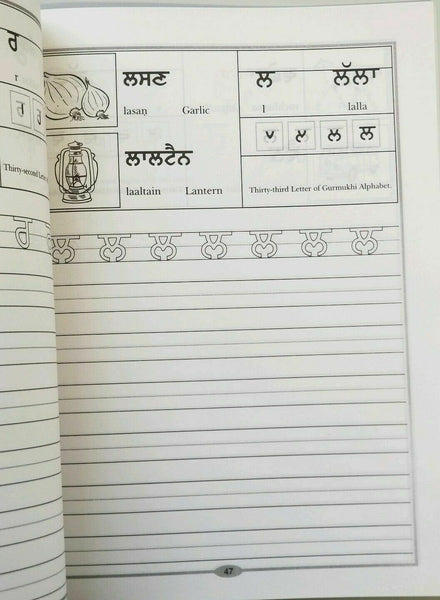 ਰ
r
Thirty-second Lette
ਲਸਣ
lasaṇ Garlic
ਲਾਲਟੈਨ
laaltain Lantern
ਲ ਲੱਲਾ
l lalla
ਲ
Thirty-third Letter of Gurmukhi Alphabet.
ਰ
ਲ ਲ ਲ ਲ ਲ ਲ ਲ
47